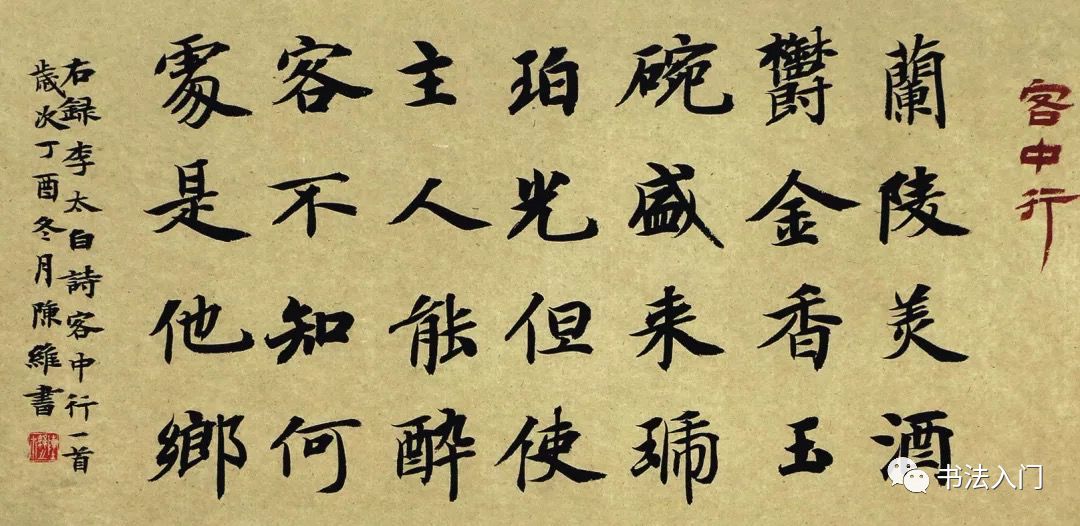 客中行
蘭陵美酒
鬱金香玉
碗盛来琥
珀光但使
主人能醉
客不知何
處是他鄉
右録李太白詩客中行一首
歲次丁酉冬月陳維書
书法入门